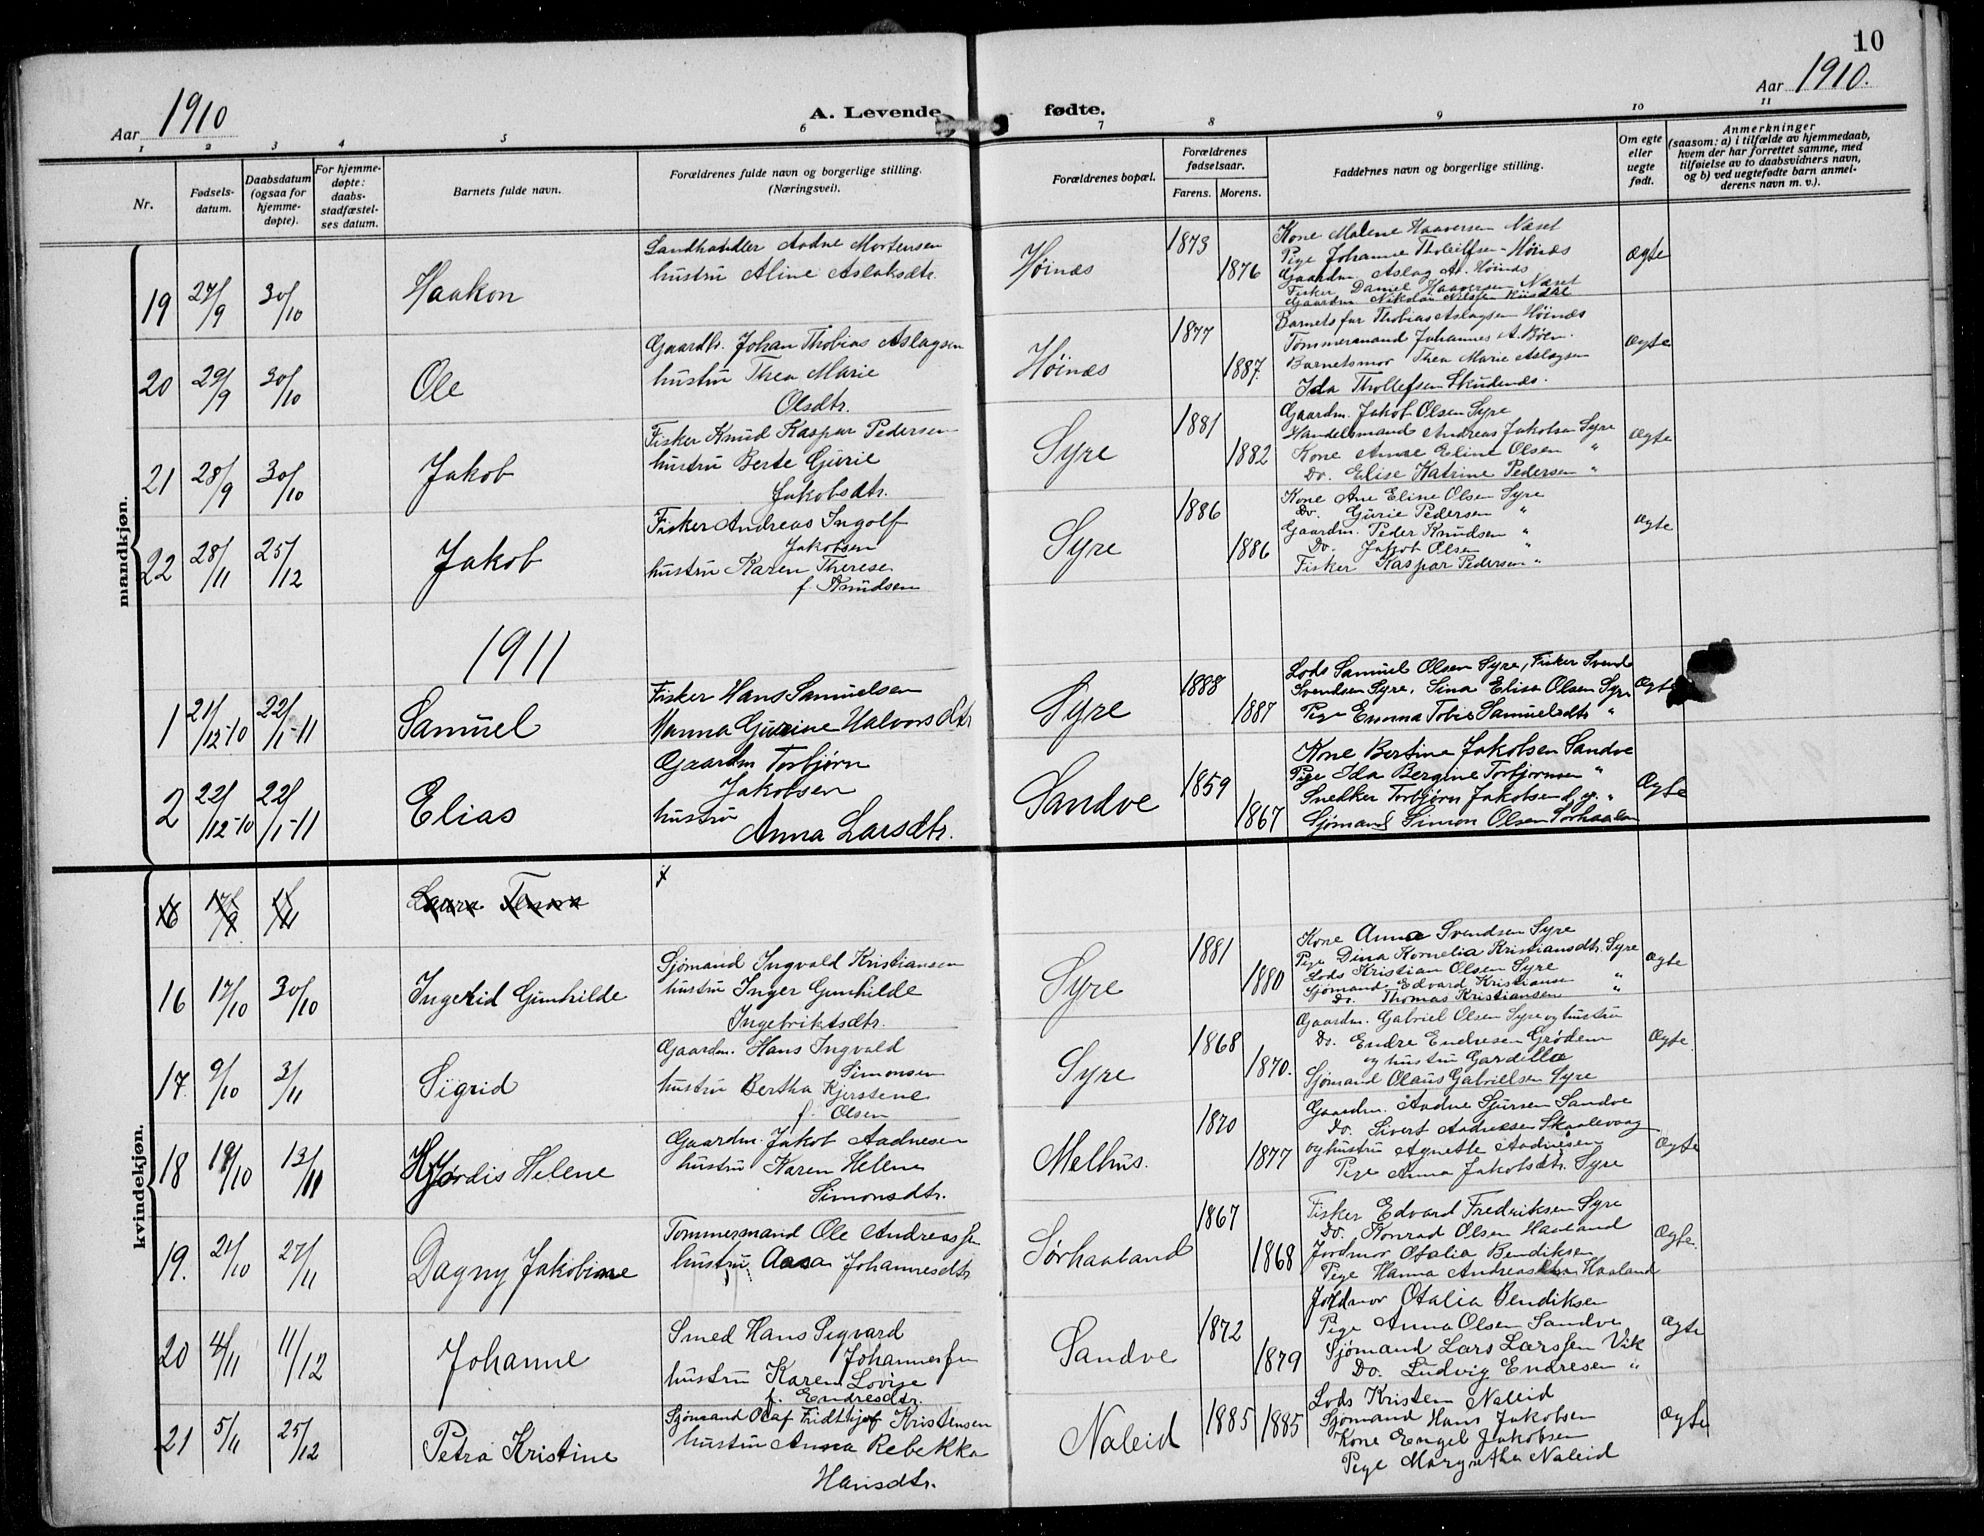 10
Aar 1910
A. Levende fødte.
Aar 1910.
1 2 3 4 5 6 7 8 9 10 11
Nr.
Fødsels-
datum.
Daabsdatum
(ogsaa for
hjemme-
døpte).
For hjemme-
døpte:
daabs-
stadfæstel-
ses datum.
Barnets fulde navn.
Forældrenes fulde navn og borgerlige stilling.
(Næringsvei).
Forældrenes bopæl.
Forældrenes
fødselsaar.
Farens. Morens.
Faddernes navn og borgerlige stilling.
Om egte
eller
uegte
født.
Anmerkninger
(saasom: a) i tilfælde av hjemmedaab,
hvem der har forrettet samme, med
tilføielse av to daabsvidners navn,
og b) ved uegtefødte barn anmel-
derens navn m. v.).
mandkjøn.
19 27/9 30/10 Haakon
Landhandler Aadne Mortensen
hustru Aline Aslaksdtr.
Høinæs 1873 1876
Kone Malene Haaversen Næset
Pige Johanne Tholelfsen Høinæs
Gaardm. Aslag A. Høinæs
Fisker Daniel Haaversen Næset
Gaardm Nikolai Nilssen
ægte
20 29/9 30/10 Ole
Gaardbr. Johan Thobias Aslagsen
hustru Thea Marie
Olsdtr.
Høinæs 1877 1887.
Barnets far Thobias Aslagsen Høinæs
Tømmermand Johannes A. Bøen.
Barnetsmor Thea Marie Aslagsen
Ida Thollefsen Skudenæs.
ægte
21 28/9 30/10 Jakob
Fisker Knud Kaspar Pedersen
hustru Berte Gurie
Jakobsdtr.
Syre 1881 1882
Gaardm. Jakob Olsen Syre
Handelsmand Andreas Jakobsen Syre
Kone Anne Eline Olsen "
Do. Elise Katrine Pedersen "
ægte
22 28/11 25/12 Jakob
Fisker Andreas Ingolf
Jakobsen
hustru Karen Therese
f. Knudsen
Syre 1886 1886
Kone Ane Eline Olsen Syre
Do. Gurie Pedersen "
Gaardm. Peder Knudsen "
Do. Jakob Olsen "
Fisker Kaspar Pedersen "
ægte
1911
1 21/12-10 22/1-11 Samuel
Fisker Hans Samuelsen
Hanna Gurine Halvorsdtr
Syre 1888 1887
Lods Samuel Olsen Syre, Fisker Svend
Svendsen Syre, Sina Elisa Olsen Syre
Pige Emma Tobie Samuelsdtr "
Ægte
2 22/12-10 22/1-11 Elias
Gaardm Torbjørn
Jakobsen
hustru
Anna Larsdtr.
Sandve 1859 1867
Kone Bertine Jakobsen Sandve
Pige Ida Bergine Torbjørnsen "
Snekker Torbjørn Jakobsen d.y. "
Sjømand Simon Olsen Sørhaaland
Ægte
kvindekjøn.
16 17/9 Laura
16 17/10 30/10 Ingerid Gunhilde
Sjømand Ingvald Kristiansen
hustru Inger Gunhilde
Ingebriktsdtr.
Syre 1881 1880
Kone Anna Svendsen Syre
Pige Dina Kornelia Kristiansdtr. Syre
Lods Kristian Olsen Syre
Sjømand Edvard Kristiansen "
Do. Thomas Kristiansen "
ægte
17. 9/10 3/11 Sigrid
Gaardm. Hans Ingvald
Simonsen
hustru Bertha Kjerstene
f. Olsen
Syre 1868 1870.
Gaardm. Gabriel Olsen Syre og hustru
Do. Endre Endresen Grødem
og hustru Gardilla
Sjømand Olaus Gabrielsen Syre
Ægte.
18 19/10 13/11 Hjørdis Helene
Gaardm. Jakob Aadnesen
hustru Karen Helene
Simonsdtr.
Melhus. 1870 1877
Gaardm. Aadne Sjursen Sandve
Do. Sivert Andresen Skaalevaag
og hustru Agnette Aadnesen
Pige Anna Jakobsdtr. Syre
Ægte
19. 21/10 27/11 Dagny Jakobine
Tømmermand Ole Andreassen
hustru Aasa Johannesdtr.
Sørhaaland 1867 1868
Fisker Edvard Fredriksen Syre
Do. Konrad Olsen Haaland
Jordmor Otalia Bendiksen
Pige Hanna Andreasen Haaland
Ægte.
20 4/11 11/12 Johanne
Smed Hans Sigvard
Johannessen
hustru Karen Lovise
f. Endresdtr.
Sandve 1872 1879
Jordmor Otalia Bendiksen
Pige Anna Olsen Sandve
Sjømand Lars Larssen Vik
Do. Ludvig Endresen "
ægte
21 5/11 25/12 Petra Kristine
Sjømand Olaf Fridthjof Kristensen
hustru Anna Rebekka
Hansdtr.
Naleid 1885 1885
Lods Kristen Naleid
Sjømand Hans Jakobsen
Kone Engel Jakobsen
Pige Margrethe Naleid
ægte